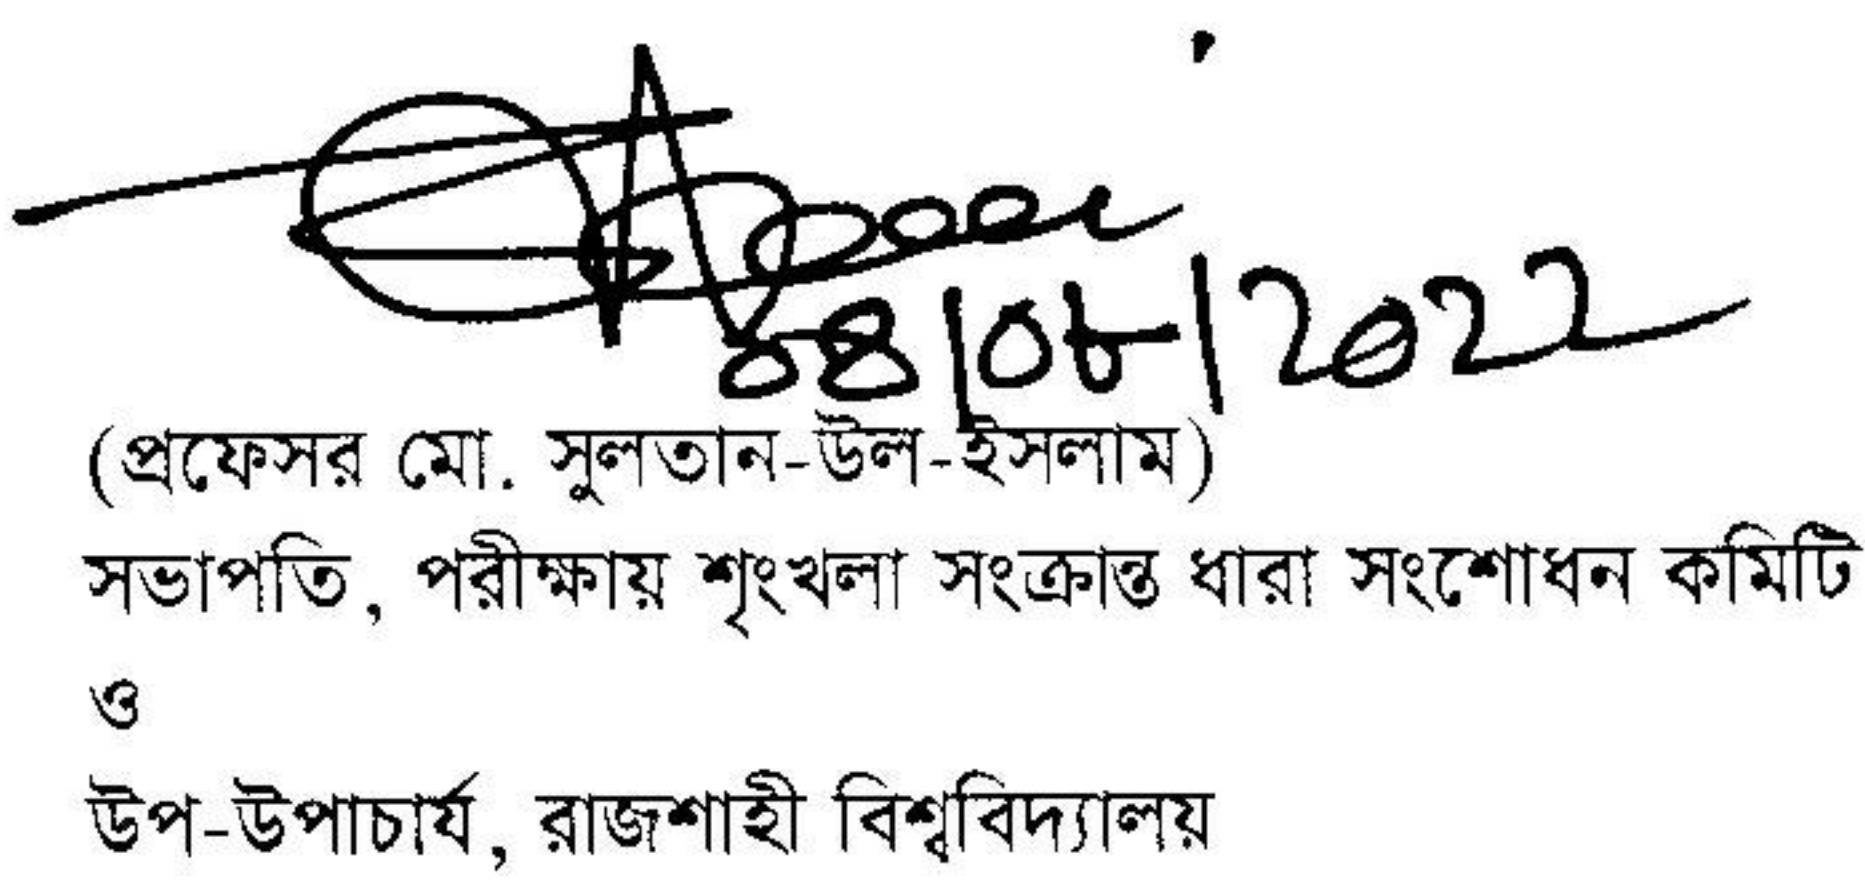 ০৪/০৮/২০২২
(প্রফেসর মো. সুলতান-উল-ইসলাম)
সভাপতি, পরীক্ষায় শৃংখলা সংক্রান্ত ধারা সংশোধন কমিটি
ও
উপ-উপাচার্য, রাজশাহী বিশ্ববিদ্যালয়